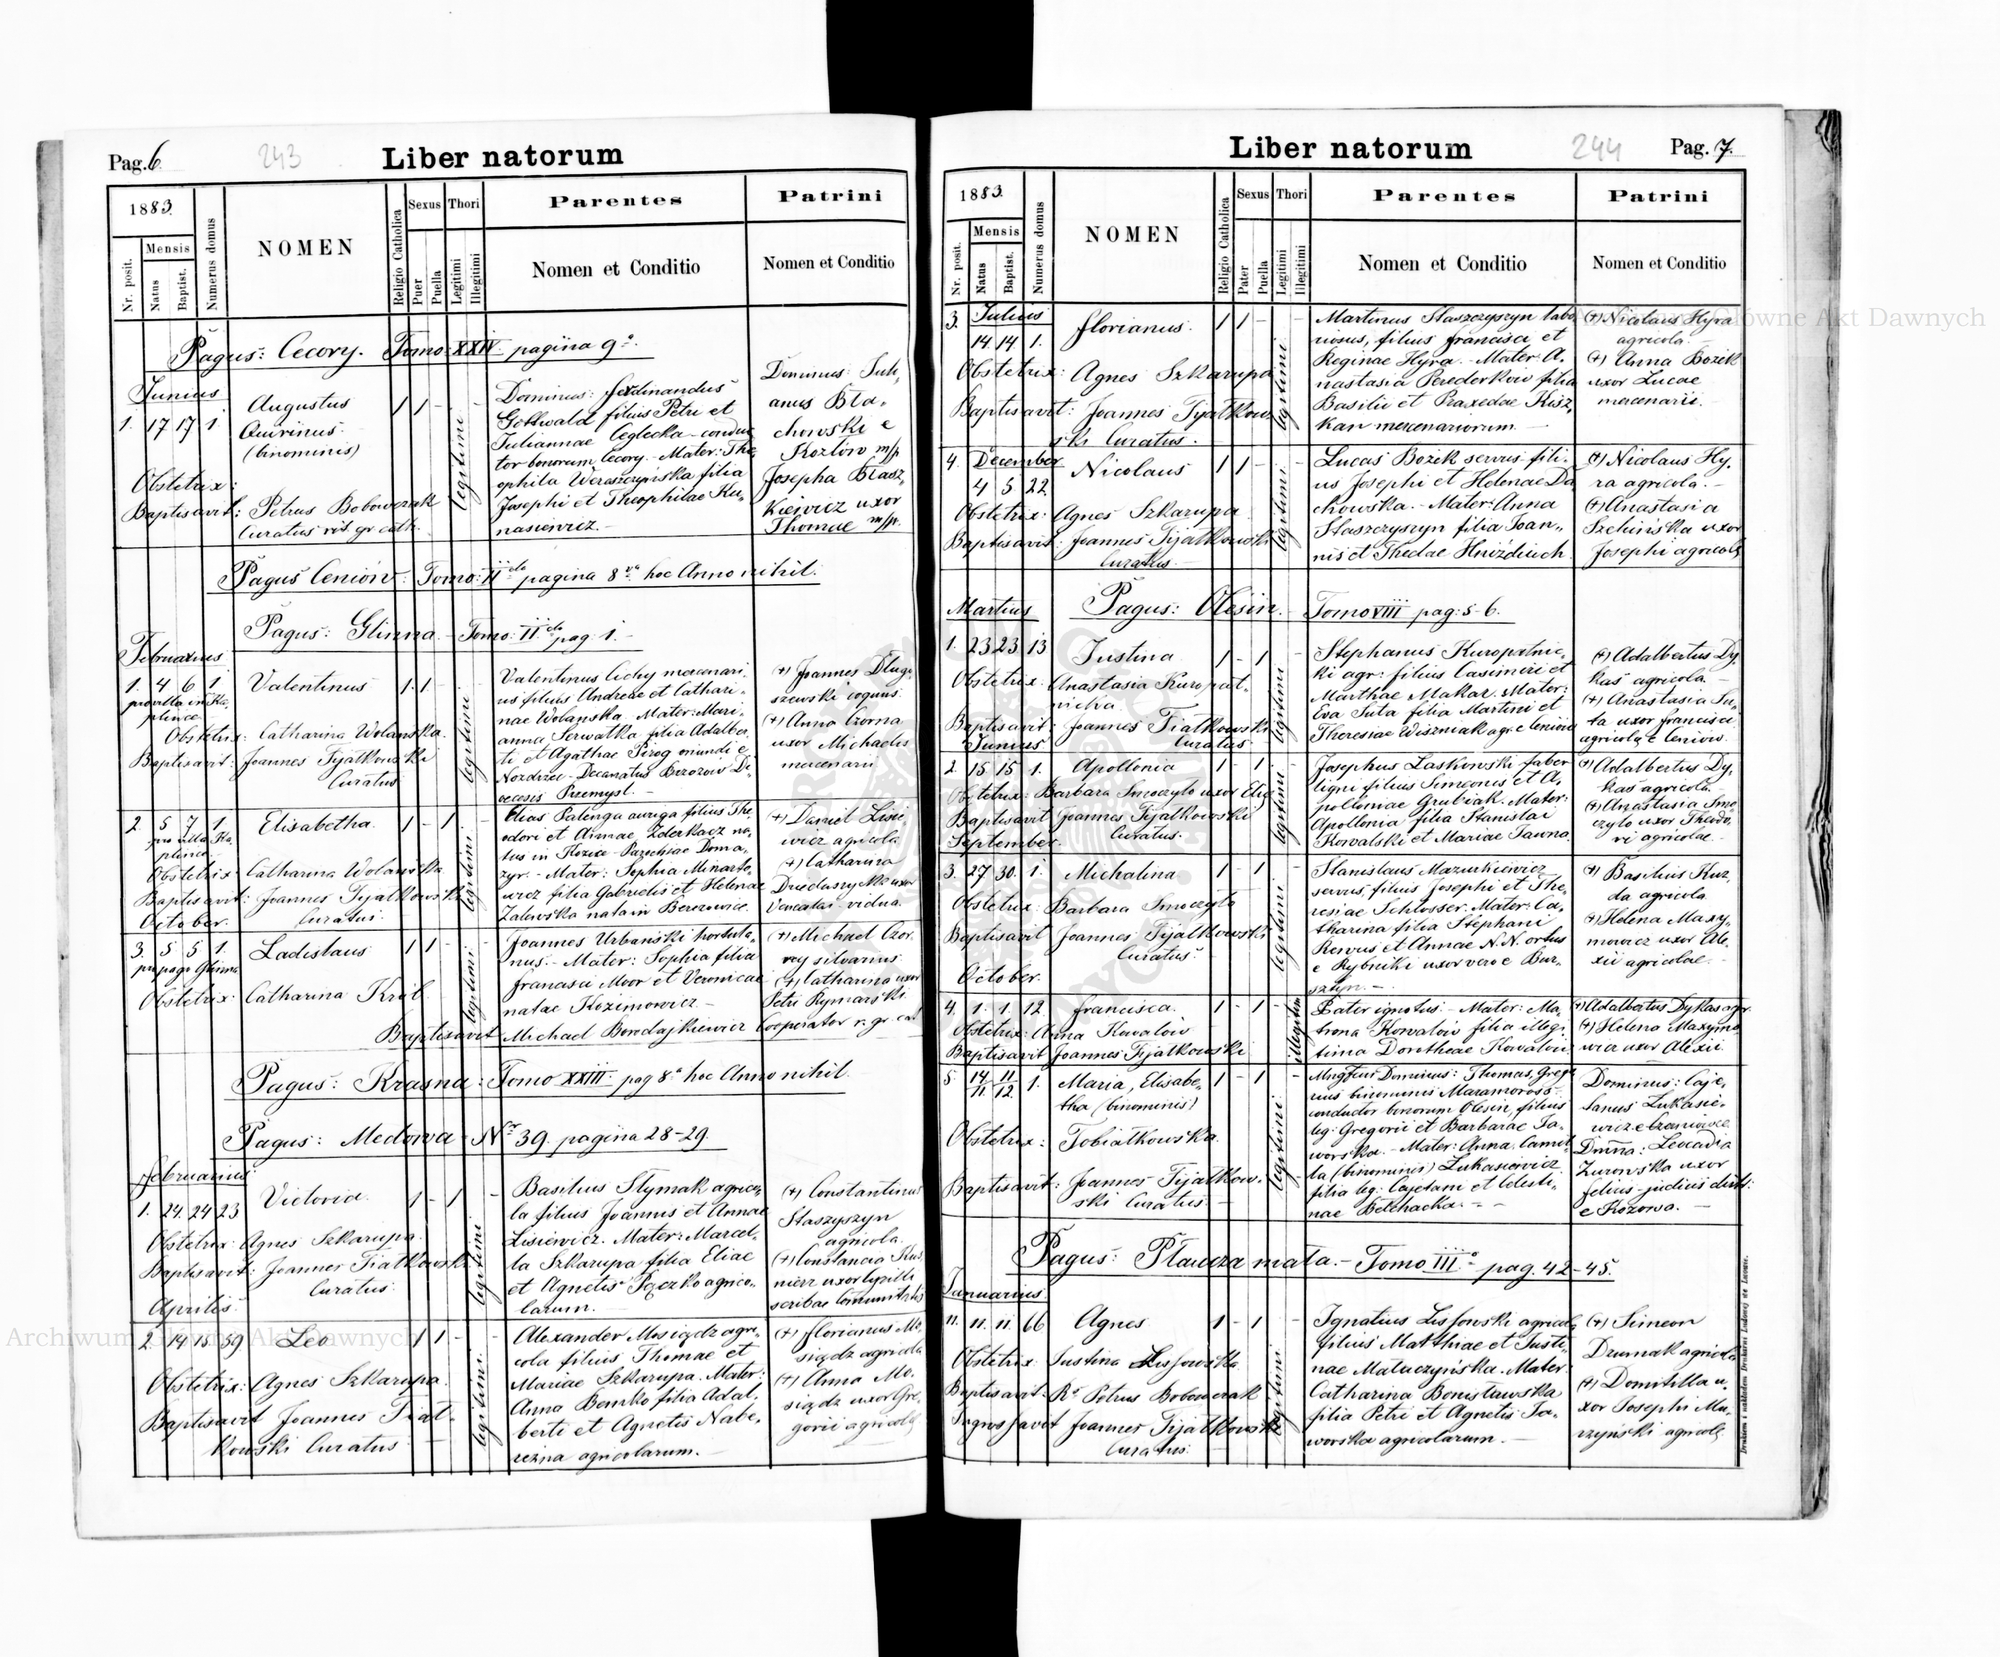 Pag. 6.
243
Liber natorum
1883.
Nr. posit.
Mensis
Natus
Baptist.
Numerus domus
NOMEN
Religio Catholica
Sexus
Puer
Puella
Thori
Legitimi
Illegitimi
Parentes
Nomen et Conditio
Patrini
Nomen et Conditio
Pagus: Cecory. Tomo: XXIV. pagina 9a.
Junius
1. 17 17 1.
Augustus
Quirinus
(binominis)
1 1 - -
legitimi
Obstetrix:
Baptisavit: Petrus Bobowczak
Curatus rit. gr. cath.
Dominus: Ferdinandus
Gottwald filius Petri et
Juliannae Ceglecka - conduc
tor bonorum Cecory. Mater: The
ophila Weraszczyńska filia
Josephi et Theophilae Ku-
nasiewicz. -
Dominus: Juli,
anus Bła-
chowski e
Kozłów m/p
Josepha Błasz,
kiewicz uxor
Thomae m/p.
Pagus Ceniów: Tomo: II pagina 8va hoc Anno nihil.
Pagus: Glinna - Tomo: II pag. 1. -
Februarius
1. 4 6 1.
pro villa in Ka
plince
Valentinus
1. 1. -
legitimi
Obstetrix: Catharina Wolańska.
Baptisavit: Joannes Fijałkowski
Curatus
Valentinus Cichy mercenari-
us filius Andreae et Cathari-
nae Wolańska. Mater: Mari-
anna Serwatka filia Adalber,
ti et Agathae Pirog oriundi e
Nozdrzec - Decanatus Brzozów Di-
oecesis Przemysl. -
(+) Joannes Długo
szewski coquus.
(+) Anna Czorna
uxor Michaelis
mercenarii
2. 5 7 1.
pro villa Ka
plince
Elisabetha.
1 - 1 -
legitimi
Obstetrix: Catharina Wolańska
Baptisavit: Joannes Fijałkowski
Curatus
Elias Palenga auriga filius The
odori et Annae Zderkacz na,
tus in Kozice - Parochiae Doma,
zyr. - Mater: Sophia Minarto-
wicz filia Gabrielis et Helenae
Zalewska nata in Berezowice.
(+) Daniel Lisie
wicz agricola
(+) Catharina
vidua.
October.
3. 5 5 1.
pro pago Glinna
Ladislaus
1 1 - -
legitimi
Obstetrix: Catharina Król
Baptisavit Michael Borodajkiewicz Cooperator r. gr. cat
Joannes Urbański hortula-
nus. - Mater: Sophia filia
Francisci Moor et Veronicae
natae Kozimowicz -
(+) Michael Czor,
ney silvarius
(+) Catharina uxor
Petri Rymarski
Pagus: Krasna: Tomo XXIII pag 8a. hoc Anno nihil.
Pagus: Medowa - Nro 39. pagina 28-29.
Februarius
1. 24. 24 23
Victoria.
1 - 1 -
legitimi
Obstetrix: Agnes Szkarupa.
Baptisavit: Joannes Fiałkowski
Curatus.
Basilius Stymak agrico,
la filius Joannis et Annae
Lisiewicz. Mater: Marcel-
la Szkarupa filia Eliae
et Agnetis Pączko agrico-
larum. -
(+) Constantinus
Staszyszyn
agricola.
(+) Constancia Kus,
nierz uxor
scribae Communitatis
Aprilis
2. 14. 15. 59
Leo
1 1 - -
legitimi
Obstetrix: Agnes Szkarupa
Baptisavit Joannes Fiał-
kowski Curatus
Alexander Mosiądz agri-
cola filius Thomae et
Mariae Szkarupa. Mater:
Anna Bemko filia Adal,
berti et Agnetis Nabe,
rezna agricolarum. -
(+) Florianus Mo,
siądz agricola
(+) Anna Mo,
siądz uxor Gre,
gorii agricolę
Liber natorum
244
Pag. 7.
1883.
Nr. posit.
Mensis
Natus
Baptist.
Numerus domus
NOMEN
Religio Catholica
Sexus
Pater
Puella
Thori
Legitimi
Illegitimi
Parentes
Nomen et Conditio
Patrini
Nomen et Conditio
3. Julius
14. 14 1.
Florianus.
1 1 - -
legitimi
Obstetrix: Agnes Szkarupa
Baptisavit: Joannes Fijałkow,
ski Curatus.
Martinus Staszczyszyn labo,
riosus, filius Francisci et
Reginae Hyra. - Mater: A,
nastasia Perederkow filia
Basilii et Praxedae Kisz,
kan mercenariorum -
(+) Nicolaus Hyra
agricola. -
(+) Anna Bożek
uxor Lucae
mercenarii.
4. December
4 5 22
Nicolaus
1 1 - -
legitimi
Obstetrix: Agnes Szkarupa
Baptisavit: Joannes Fijałkowski
Curatus. -
Lucas Bożek servus fili-
us Josephi et Helenae Da
chowska. - Mater: Anna
Staszczyszyn filia Joan,,
nis et Theclae Hniździuch.
(+) Nicolaus Hy,
ra agricola. -
(+) Anastasia
Szelińska uxor
Josephi agricolę
Martius
Pagus: Olesin. - Tomo VIII pag: 5-6.
1. 23 23 13
Justina
1 - 1 -
legitimi
Obstetrix: Anastasia Kuropat-
nicka
Baptisavit: Joannes Fiałkowski
Curatus
Stephanus Kuropatnic-
ki agr: filius Casimiri et
Marthae Makar. Mater:
Eva Suta filia Martini et
Theresiae Wiszniak agr. e Ceniów
(+) Adalbertus Dy,
kaś agricola -
(+) Anastasia Su,
ta uxor Francisci
agricolę e Ceniów.
Junius
2. 15. 15. 1.
Apollonia
1 - 1 -
legitimi
Obstetrix: Barbara Smoczyło uxor
Baptisavit Joannes Fijałkowski
Curatus.
Josephus Laskowski faber
ligni filius Simeonis et A,
polloniae Grubiak. Mater:
Apollonia filia Stanislai
Kowalski et Mariae Tauna.
(+) Adalbertus Dy,
kaś agricola. -
(+) Anastasia Smo
czyło uxor Theodo,
ri agricolae. -
September
3. 27 30. 1.
Michalina
1 - 1 -
legitimi
Obstetrix: Barbara Smoczyło
Baptisavit Joannes Fijałkowski
Curatus.
Stanislaus Mazurkiewicz
servus, filius Josephi et The,
resiae Schlosser. Mater: Ca,
tharina filia Stephani
Rewus et Annae N.N. ortus
e Rybniki uxor vero e Bur,
sztyn. -
(+) Basilius Kuz,
da agricola
(+) Helena Maxy,
mowicz uxor Ale,
xii agricolae. -
October.
4. 1. 1. 12
Francisca.
1 - 1 -
illegitimi
Obstetrix: Anna Kowalow
Baptisavit Joannes Fijałkowski
Pater ignotus. - Mater: Ma,
trona Kowalow filia illegi
tima Dorotheae Kowalow
(+) Adalbertus Dykas agr.
(+) Helena Maxymo
wicz uxor Alexii
5. 14/11 11/12 1.
Maria, Elisabe-
tha (binominis)
1 - 1 -
legitimi
Obstetrix: Tobiałkowska.
Baptisavit: Joannes Fijałkow,
ski Curatus.
Mngfcus Dominus: Thomas, Grego
rius binominis Maramoross
conductor bonorum Olesin, filius
leg: Gregorii et Barbarae Ja-
worska. - Mater: Anna, Camil
la (binominis) Łukasiewicz
filia leg: Cajetani et Celesti-
nae Betchacka. -
Dominus: Caje,
tanus Łukasie-
wicz e
Dmna: Leocadia
Żurowska uxor
Felicis - judicis distr:
e Kozowa. -
Pagus: Płaucza mała. - Tomo III pag. 42-45.
Januarius
11. 11. 11. 66
Agnes
1 - 1 -
legitimi
Obstetrix: Justina Lissowska
Baptisavit: Rs Petrus Bobowczak
Ingrossavit Joannes Fijałkowski
Curatus.
Ignatius Lissowski agricola
filius Matthiae et Justi-
nae Matuczyńska. Mater:
Catharina Bonisławska
filia Petri et Agnetis Ja-
worska agricolarum. -
(+) Simeon
Drumak agricola
(+) Domitilla u,
xor Josephi Mu,
czyński agricolę
Drukiem i nakładem Drukarni Ludowej we Lwowie.
Archiwum Główne Akt Dawnych
Archiwum Główne Akt Dawnych